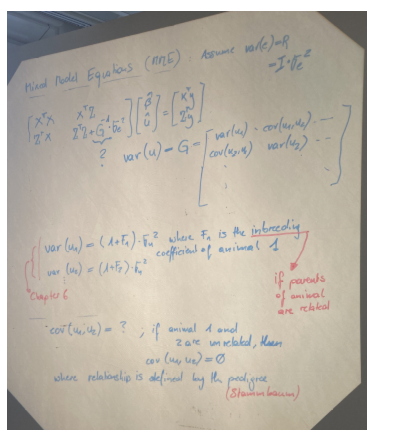 Mixed Model Equations (MME) : Assume var(e)=R
= I·σe²
[XᵀX XᵀZ] [β̂] = [Xᵀy]
[ZᵀX ZᵀZ+G⁻¹·σe²] [û] = [Zᵀy]
?
var(u) = G = [var(u₁) · cov(u₁,u₂) ...
cov(u₂,u₁) var(u₂) ...
var(u₁) = (1+F₁)·σu² where F₁ is the inbreeding
coefficient of animal 1
var(u₂) = (1+F₂)·σu²
Chapter 6
if parents
of animal
are related
cov(u₁,u₂) = ? ; if animal 1 and
2 are unrelated, then
cov(u₁,u₂) = 0
where relationship is defined by the pedigree
(Stammbaum)